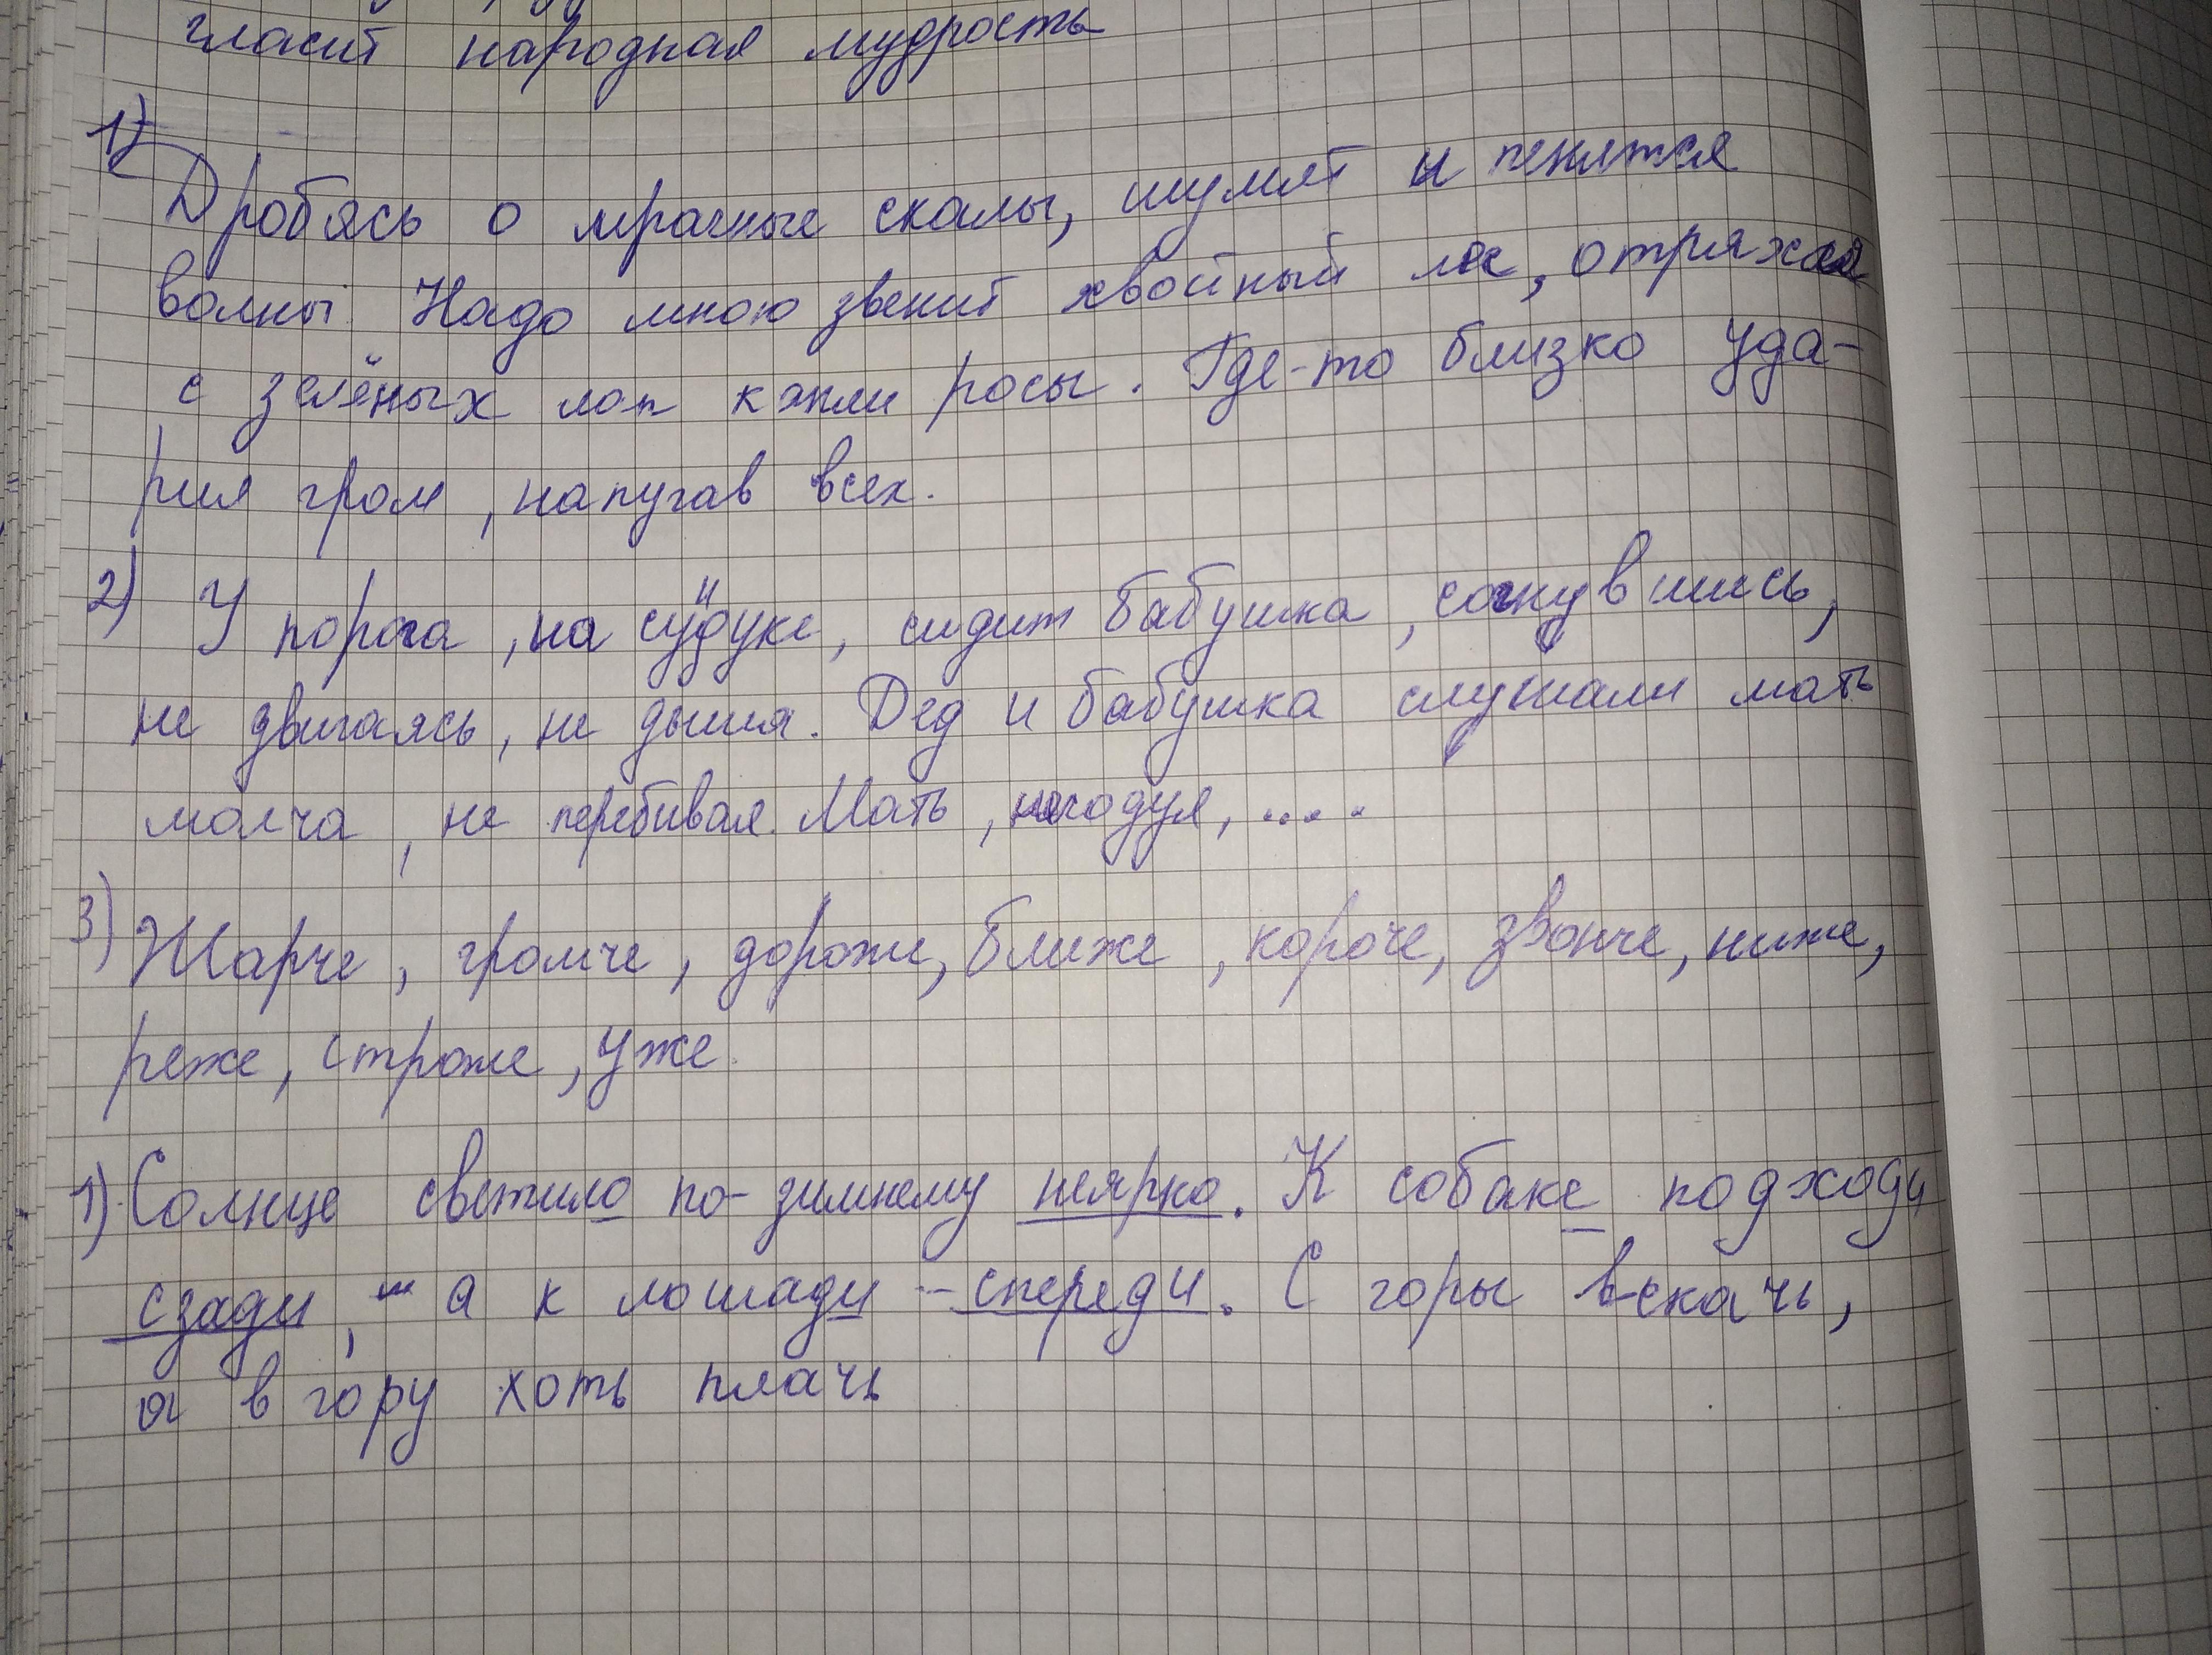 гласит народная мудрость
1)
Дробясь о мрачные скалы, шумят и пенятся
волны. Надо мною звенит хвойный лес, отряхая
с зелёных лап капли росы. Где-то близко уда-
рил гром, напугав всех.
2) У порога, на сундуке, сидит бабушка, согнувшись,
не двигаясь, не дыша. Дед и бабушка слушали мать
молча, не перебивая. Мать, негодуя, ....
3) Жарче, громче, дороже, ближе, короче, звонче, ниже,
реже, строже, уже.
1) Солнце светило по-зимнему неярко. К собаке подходи
сзади, а к лошади - спереди. С горы вскачь,
а в гору хоть плачь